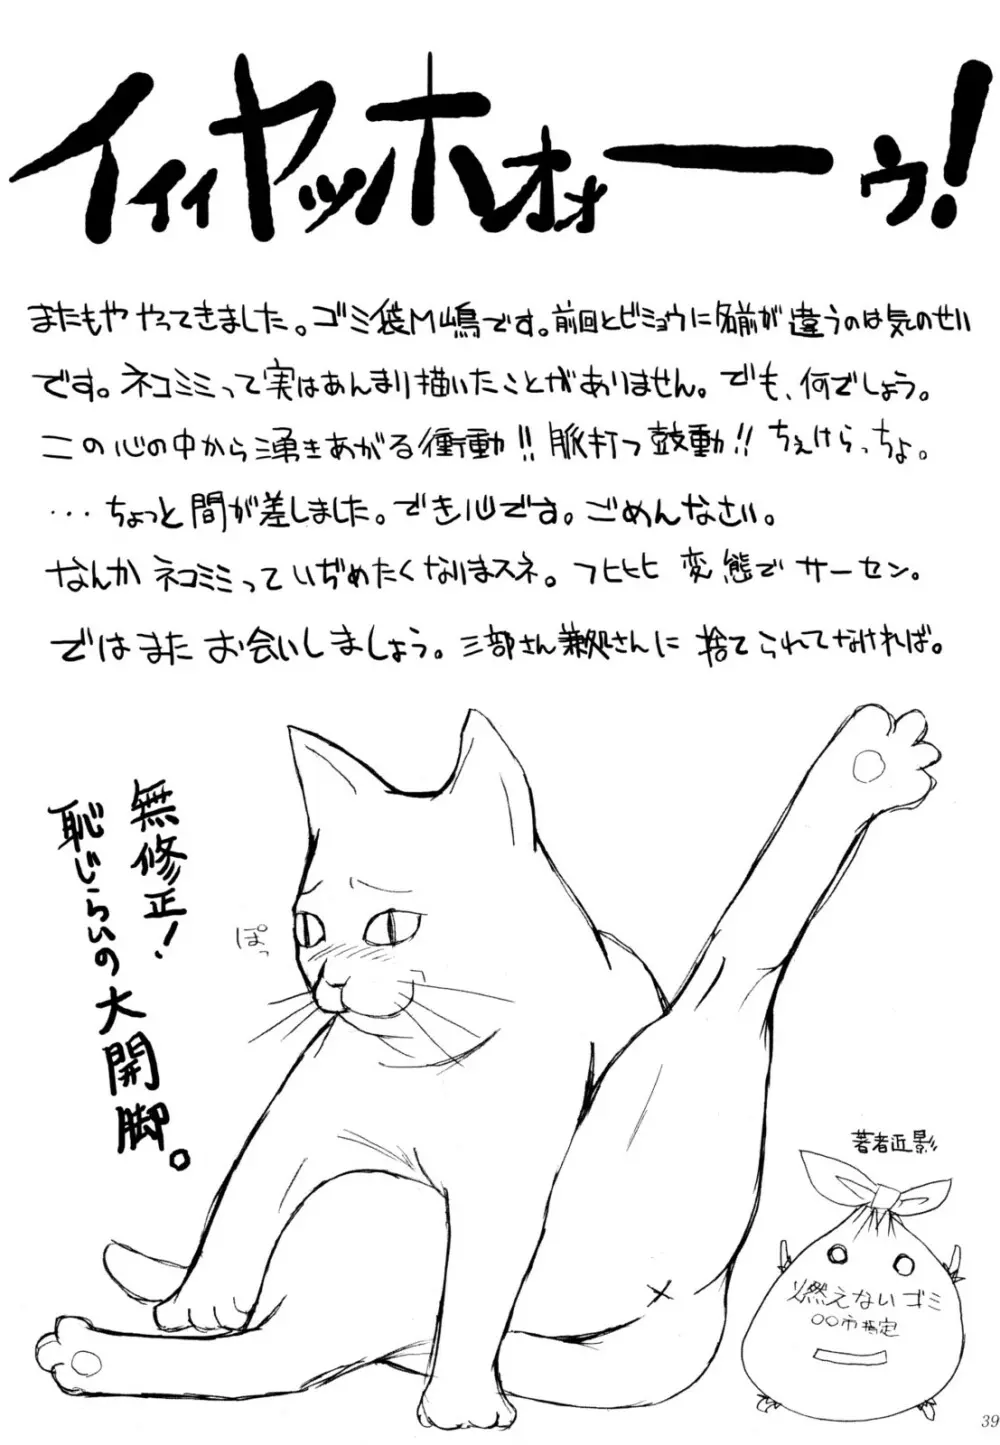 イィィヤッホォォーーゥ!
またもや やってきました。ゴミ袋M嶋です。前回とビミョウに名前が違うのは気のせい
です。ネコミミって実はあんまり描いたことがありません。でも、何でしょう。
この心の中から湧きあがる衝動!!脈打つ鼓動!!ちぇけらっちょ。
・・・ちょっと間が差しました。でき心です。ごめんなさい。
なんかネコミミっていぢめたくなりまスネ。フヒヒヒ 変態でサーセン。
ではまた お会いしましょう。三部さん兼処さんに 捨てられてなければ。
無修正!
恥じらいの大開脚。
ぽっ
著者近影
燃えないゴミ
○○市指定
39